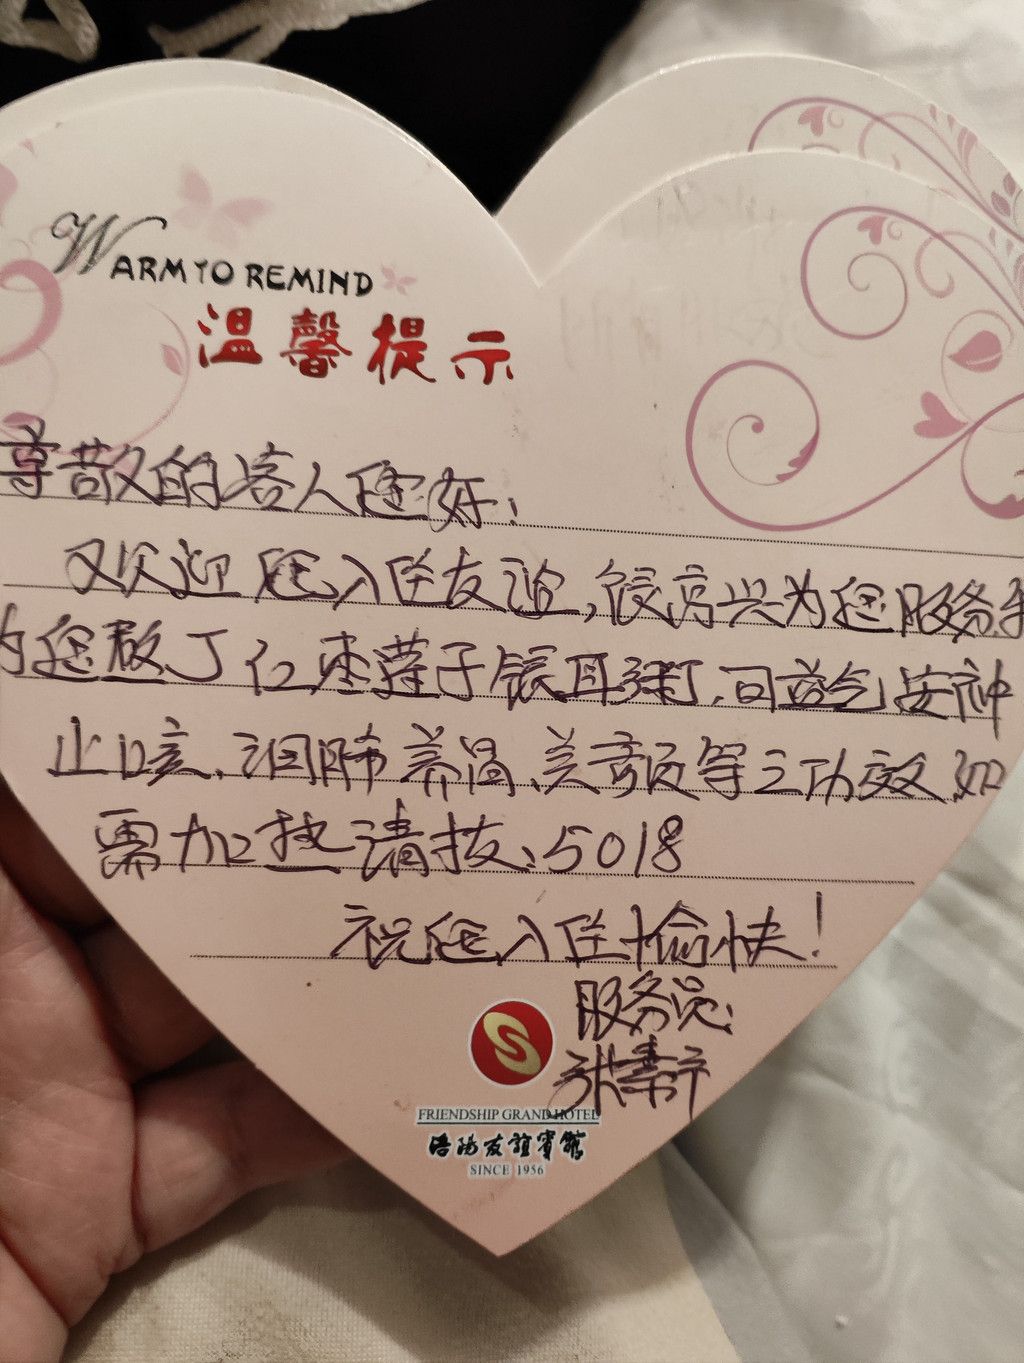 WARM TO REMIND
温馨提示
尊敬的客人您好:
欢迎您入住友谊,很高兴为您服务我
为您熬了红枣莲子银耳粥,可益气安神
止咳、润肺养胃、美容颜等之功效,如
需加热请拨:5018
祝您入住愉快!
服务员:
FRIENDSHIP GRAND HOTEL
洛阳友谊宾馆
SINCE 1956